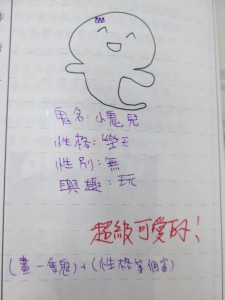 鬼名:小鬼兒
性格:樂天
性別:無
興趣:玩
超級可愛的!
(畫一隻鬼)+(性格等個資)